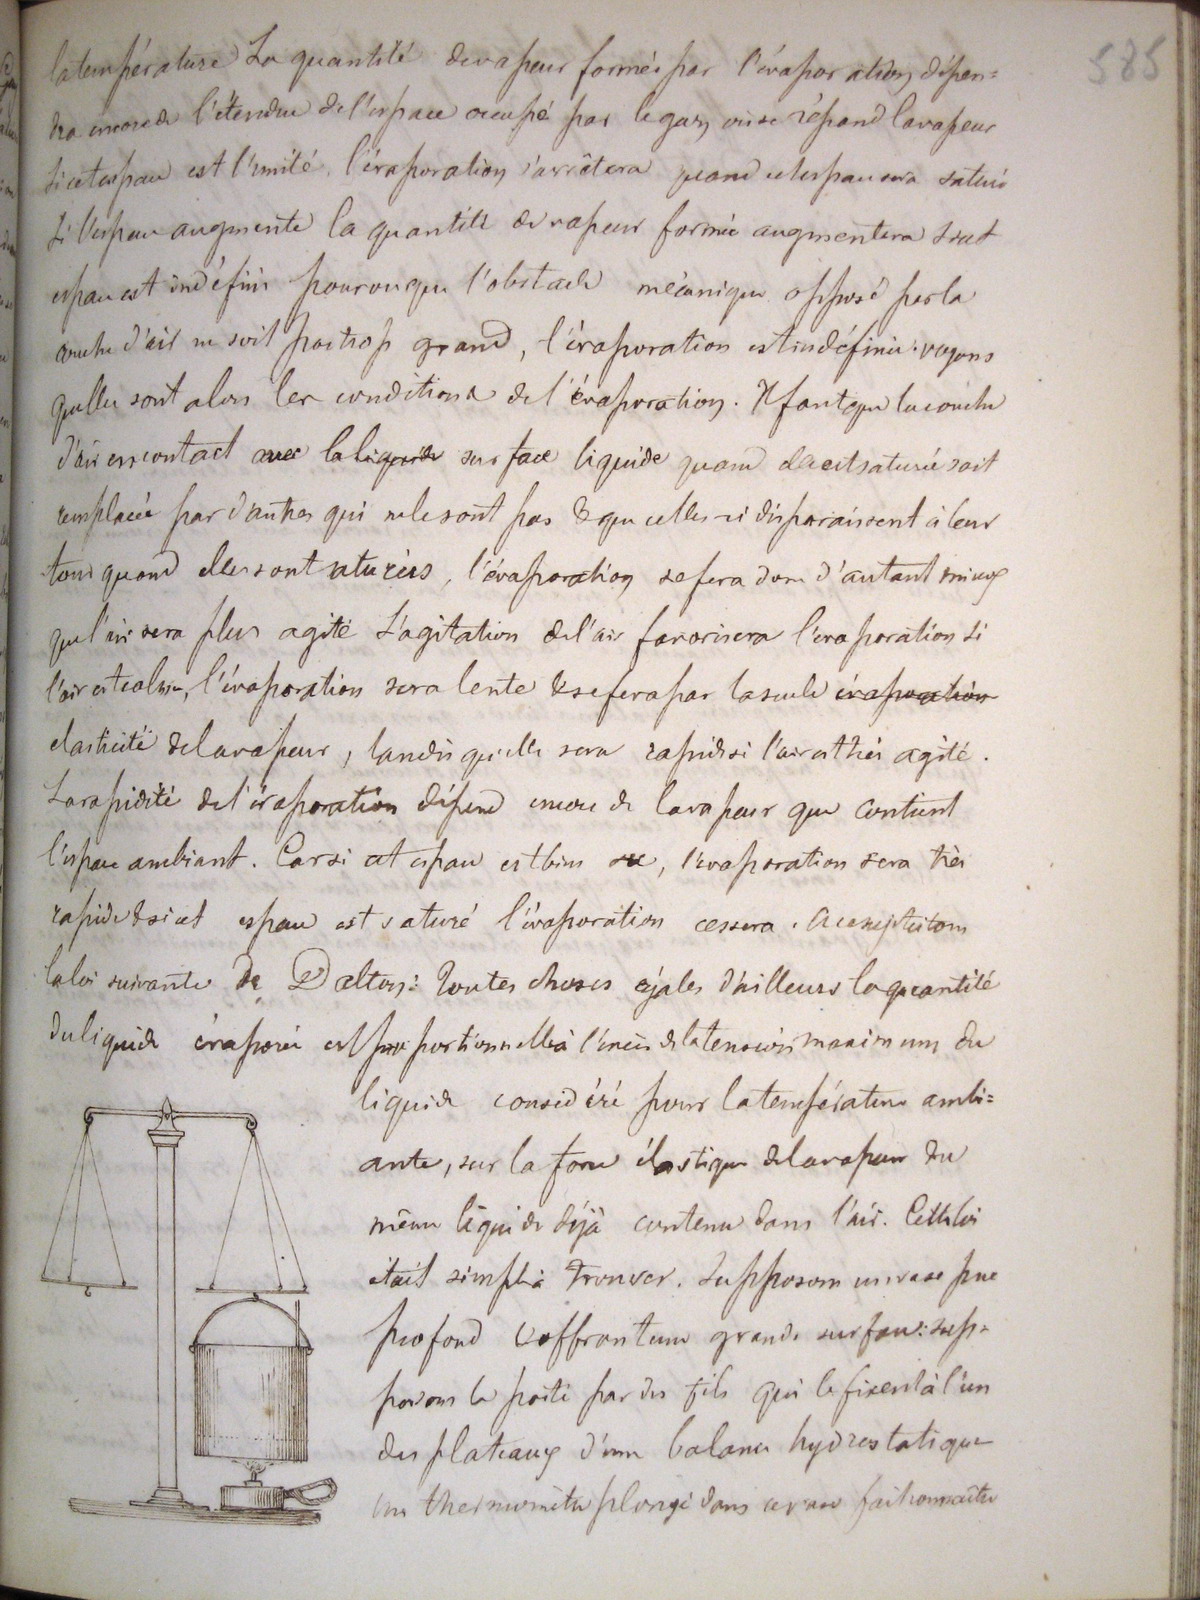 585
la température La quantité de vapeur formée par l'évaporation dépen=
dra encore de l'étendue de l'espace occupé par le gaz, où se répand la vapeur
Si cet espace est limité, l'évaporation s'arrêtera quand cet espace sera saturé
Si l'espace augmente la quantité de vapeur formée augmentera Si cet
espace est indéfini pourvu que l'obstacle mécanique opposé par la
couche d'air ne soit pas trop grand, l'évaporation est indéfinie. voyons
quelles sont alors les conditions de l'évaporation. Il faut que la couche
d'air en contact avec la liquide surface liquide quand elle est saturée soit
remplacée par d'autres qui ne le sont pas & que celles-ci disparaissent à leur
tour quand elles sont saturées, l'évaporation se fera donc d'autant mieux
que l'air sera plus agité L'agitation de l'air favorisera l'évaporation Si
l'air est calme, l'évaporation sera lente & se fera par la seule évaporation
élasticité de la vapeur, tandis qu'elle sera rapide si l'air est très agité.
La rapidité de l'évaporation dépend encore de la vapeur que contient
l'espace ambiant. Car si cet espace est bien sec, l'évaporation sera très
rapide & si cet espace est saturé l'évaporation cessera.
la loi suivante de Dalton: Toutes choses égales d'ailleurs la quantité
du liquide évaporé est proportionnelle à l'excès de la tension maximum du
liquide considéré pour la température ambi=
ante, sur la force élastique de la vapeur du
même liquide déjà contenu dans l'air. Cette loi
était simple à trouver. Supposons un vase peu
profond & offrant une grande surface: sup-
posons le porté par des fils qui le fixent à l'un
des plateaux d'une balance hydrostatique
un thermomètre plongé dans ce vase fait connaître